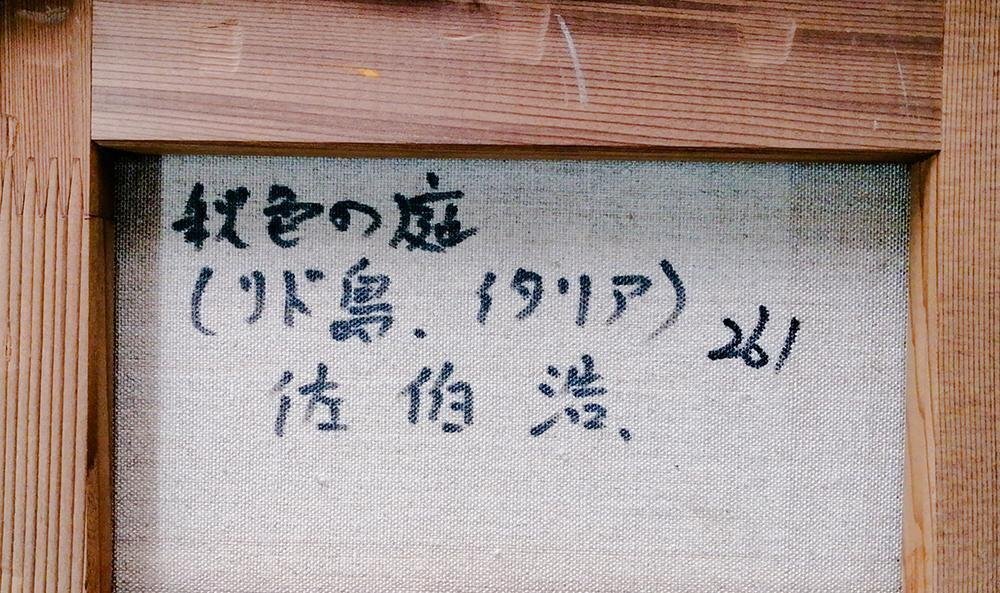 秋色の庭
(リド島. イタリア)
261
佐伯 浩.